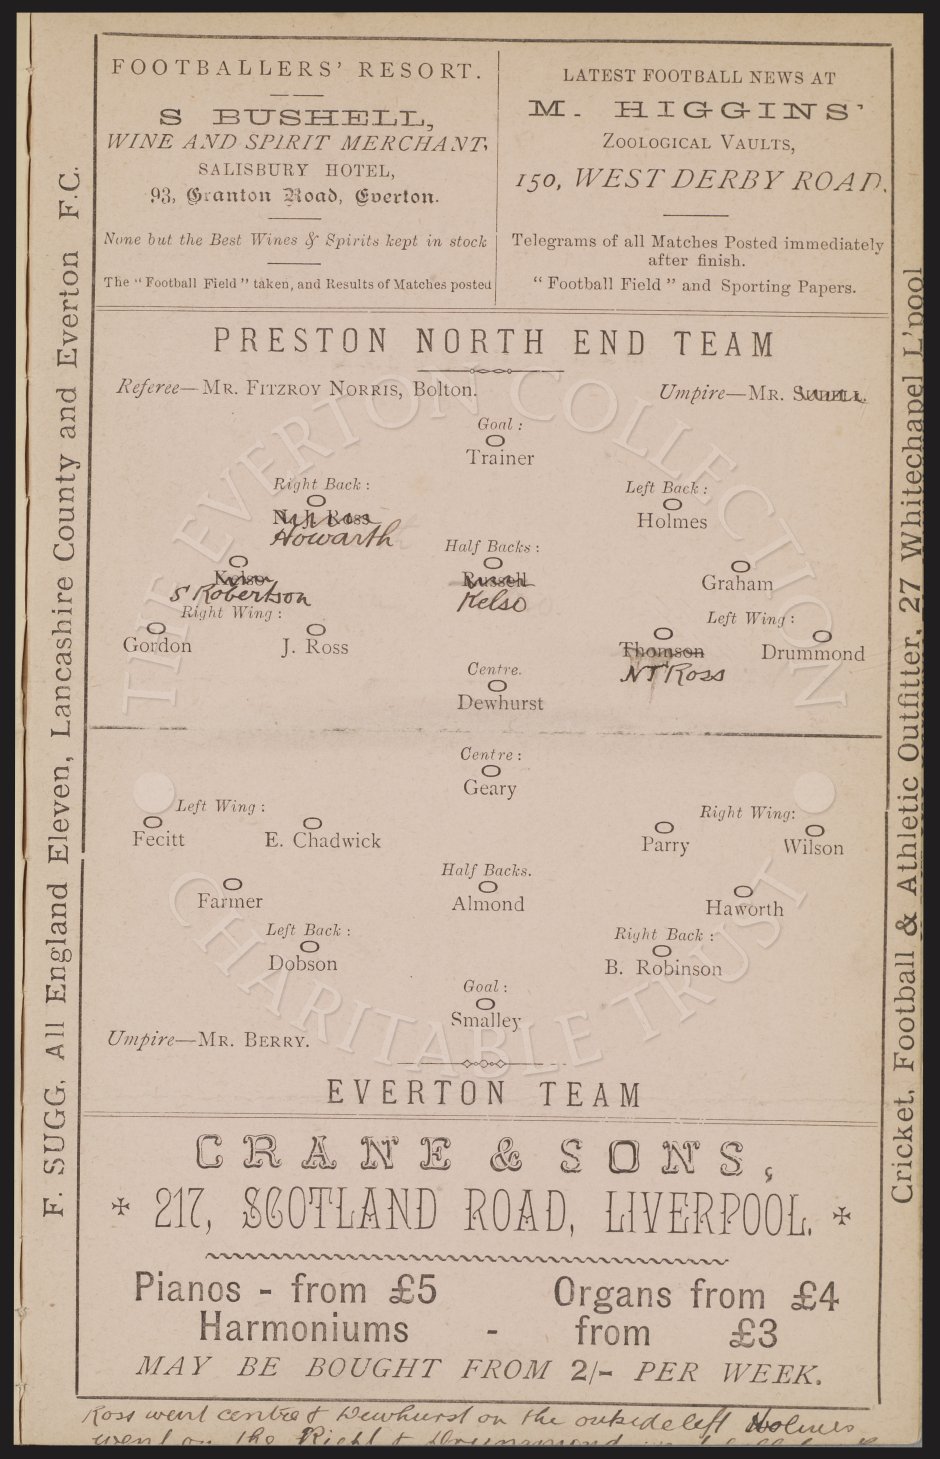 FOOTBALLERS' RESORT.
S BUSHELL,
WINE AND SPIRIT MERCHANT,
SALISBURY HOTEL,
93, Granton Road, Everton.
None but the Best Wines & Spirits kept in stock
The "Football Field" taken, and Results of Matches posted
LATEST FOOTBALL NEWS AT
M. HIGGINS'
ZOOLOGICAL VAULTS,
150, WEST DERBY ROAD.
Telegrams of all Matches Posted immediately
after finish.
"Football Field" and Sporting Papers.
F. SUGG, All England Eleven, Lancashire County and Everton F.C.
Cricket, Football & Athletic Outfitter, 27 Whitechapel L'pool
PRESTON NORTH END TEAM
Referee—MR. FITZROY NORRIS, Bolton.
Umpire—MR. SUDELL.
Goal:
Trainer
Right Back:
Left Back:
N. J. Ross
Holmes
Howarth
Half Backs:
Kelso
Russell
Graham
S Robertson
Kelso
Right Wing:
Left Wing:
Gordon
J. Ross
Thomson
Drummond
N J Ross
Centre.
Dewhurst
Centre:
Geary
Left Wing:
Right Wing:
Fecitt
E. Chadwick
Parry
Wilson
Half Backs.
Farmer
Almond
Haworth
Left Back:
Right Back:
Dobson
B. Robinson
Goal:
Smalley
Umpire—MR. BERRY.
EVERTON TEAM
CRANE & SONS,
217, SCOTLAND ROAD, LIVERPOOL.
Pianos - from £5
Organs from £4
Harmoniums - from £3
MAY BE BOUGHT FROM 2/- PER WEEK.
Ross went centre & Dewhurst on the outside left Holmes
went on the Right & Drummond
THE EVERTON COLLECTION
CHARITABLE TRUST